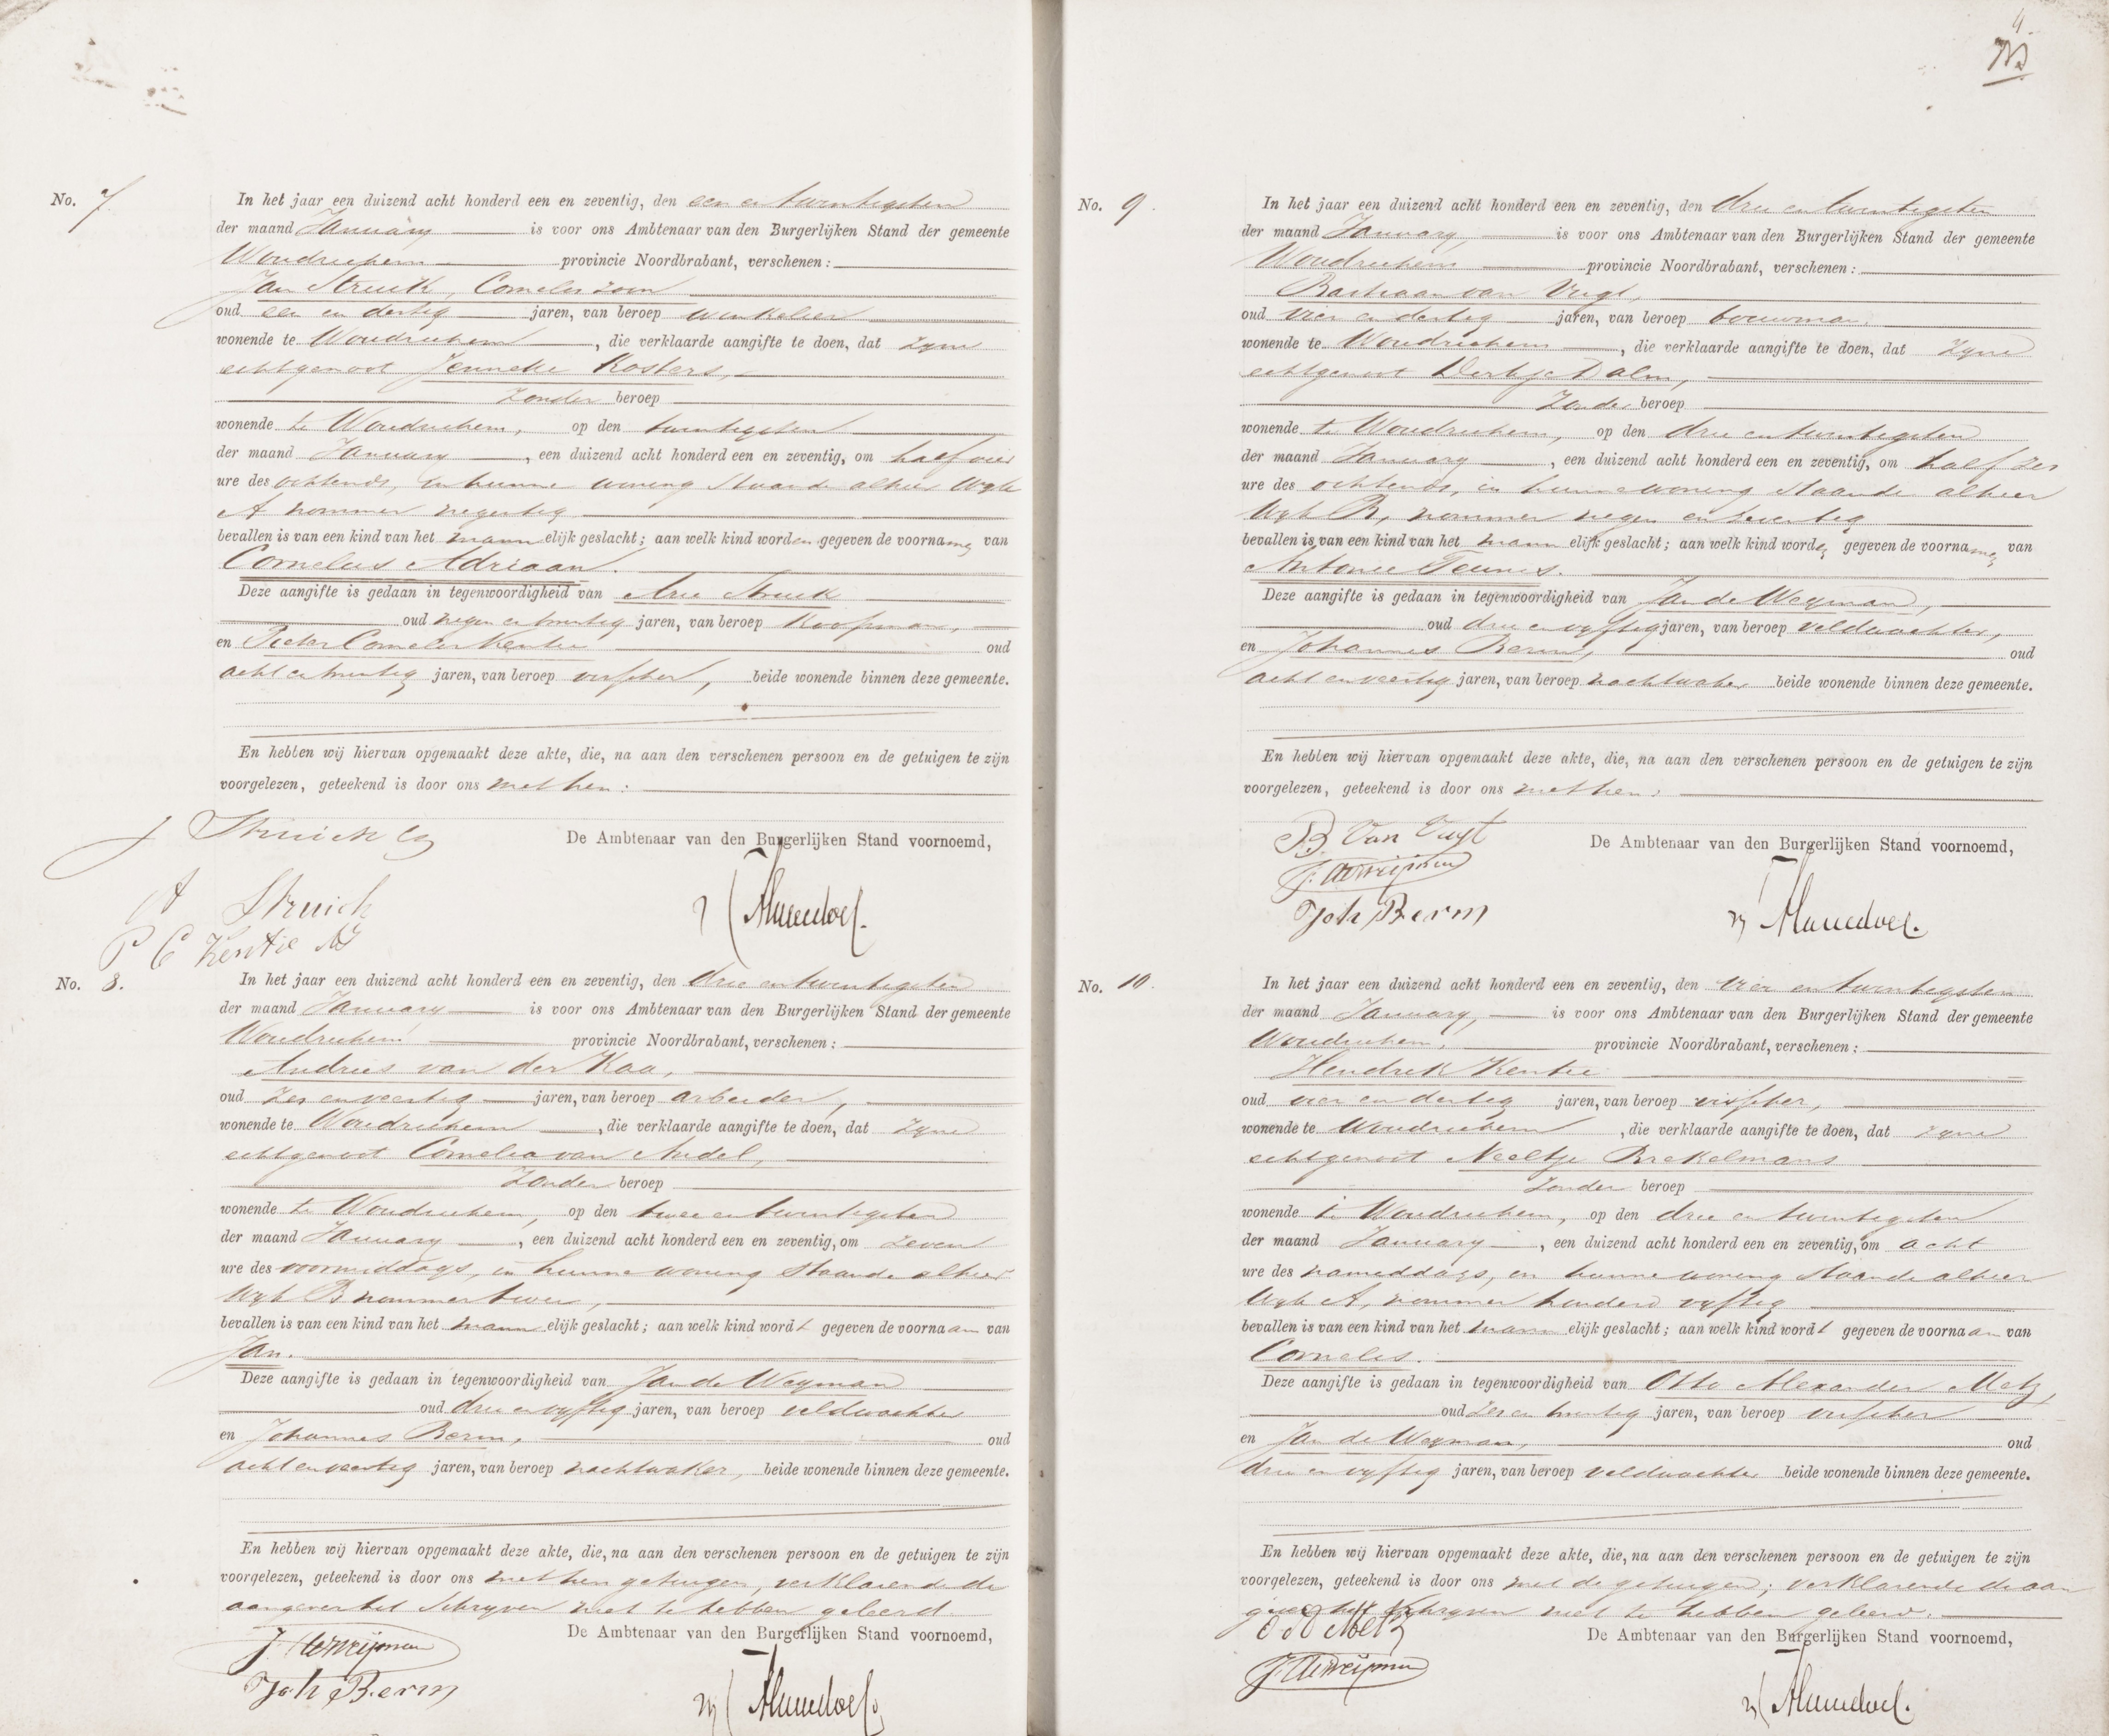 No. 7
In het jaar een duizend acht honderd een en zeventig, den een en twintigsten
der maand January is voor ons Ambtenaar van den Burgerlijken Stand der gemeente
Woudrichem provincie Noordbrabant, verschenen:
Jan Struik, Cornelis zoon
oud een en dertig jaren, van beroep winkelier
wonende te Woudrichem, die verklaarde aangifte te doen, dat zyne
echtgenoot Jenneke Kosters,
Zonder beroep
wonende te Woudrichem, op den twintigsten
der maand January, een duizend acht honderd een en zeventig, om half vier
ure des ochtends, in hunne woning staande alhier Wyk
A nommer negentig
bevallen is van een kind van het mannelijk geslacht; aan welk kind worden gegeven de voornamen van
Cornelis Adriaan.
Deze aangifte is gedaan in tegenwoordigheid van Arie Struik
oud negen en twintig jaren, van beroep Koopman,
en Pieter Cornelis Kentie oud
acht en twintig jaren, van beroep visscher, beide wonende binnen deze gemeente.
En hebben wij hiervan opgemaakt deze akte, die, na aan den verschenen persoon en de getuigen te zijn
voorgelezen, geteekend is door ons met hen.
J Struick Cz
De Ambtenaar van den Burgerlijken Stand voornoemd,
A Struick
P C Kentie
No. 8.
In het jaar een duizend acht honderd een en zeventig, den drie en twintigsten
der maand January is voor ons Ambtenaar van den Burgerlijken Stand der gemeente
Woudrichem provincie Noordbrabant, verschenen:
Andries van der Kaa,
oud zes en veertig jaren, van beroep arbeider,
wonende te Woudrichem, die verklaarde aangifte te doen, dat zyne
echtgenoot Cornelia van Andel,
Zonder beroep
wonende te Woudrichem, op den twee en twintigsten
der maand January, een duizend acht honderd een en zeventig, om zeven
ure des voormiddags, in hunne woning staande alhier
Wyk B nommer twee,
bevallen is van een kind van het mannelijk geslacht; aan welk kind wordt gegeven de voornaam van
Jan.
Deze aangifte is gedaan in tegenwoordigheid van Jan de Weyman
oud drie en vyftig jaren, van beroep veldwachter
en Johannes Berm, oud
acht en veertig jaren, van beroep nachtwaker, beide wonende binnen deze gemeente.
En hebben wij hiervan opgemaakt deze akte, die, na aan den verschenen persoon en de getuigen te zijn
voorgelezen, geteekend is door ons met hen getuigen, verklarende de
aangever het Schryven niet te hebben geleerd.
De Ambtenaar van den Burgerlijken Stand voornoemd,
Joh Berm
4.
No. 9.
In het jaar een duizend acht honderd een en zeventig, den drie en twintigsten
der maand January, is voor ons Ambtenaar van den Burgerlijken Stand der gemeente
Woudrichem provincie Noordbrabant, verschenen:
Bastiaan van Vugt,
oud vier en dertig jaren, van beroep bouwman,
wonende te Woudrichem, die verklaarde aangifte te doen, dat zyne
echtgenoot Derkje Dalm,
Zonder beroep
wonende te Woudrichem, op den drie en twintigsten
der maand January, een duizend acht honderd een en zeventig, om half zes
ure des ochtends, in hunne woning staande alhier
Wyk B, nommer negen en zeventig
bevallen is van een kind van het mannelijk geslacht; aan welk kind worden gegeven de voornamen van
Antonie Teunis.
Deze aangifte is gedaan in tegenwoordigheid van Jan de Weyman,
oud drie en vyftig jaren, van beroep veldwachter,
en Johannes Berm, oud
acht en veertig jaren, van beroep nachtwaker beide wonende binnen deze gemeente.
En hebben wij hiervan opgemaakt deze akte, die, na aan den verschenen persoon en de getuigen te zijn
voorgelezen, geteekend is door ons met hen.
B. Van Vugt
De Ambtenaar van den Burgerlijken Stand voornoemd,
Joh Berm
No. 10.
In het jaar een duizend acht honderd een en zeventig, den vier en twintigsten
der maand January, is voor ons Ambtenaar van den Burgerlijken Stand der gemeente
Woudrichem, provincie Noordbrabant, verschenen:
Hendrik Kentie
oud vier en dertig jaren, van beroep visscher,
wonende te Woudrichem, die verklaarde aangifte te doen, dat zyne
echtgenoot Neeltje Brekelmans
Zonder beroep
wonende te Woudrichem, op den drie en twintigsten
der maand January, een duizend acht honderd een en zeventig, om acht
ure des namiddags, in hunne woning staande alhier
Wyk A, nommer honderd vyftig
bevallen is van een kind van het mannelijk geslacht; aan welk kind wordt gegeven de voornaam van
Cornelis.
Deze aangifte is gedaan in tegenwoordigheid van Otto Alexander Metz,
oud zes en twintig jaren, van beroep visscher
en Jan de Weyman, oud
drie en vyftig jaren, van beroep veldwachter beide wonende binnen deze gemeente.
En hebben wij hiervan opgemaakt deze akte, die, na aan den verschenen persoon en de getuigen te zijn
voorgelezen, geteekend is door ons met de getuigen; verklarende de aan
gever het Schryven niet te hebben geleerd.
O A Metz
De Ambtenaar van den Burgerlijken Stand voornoemd,